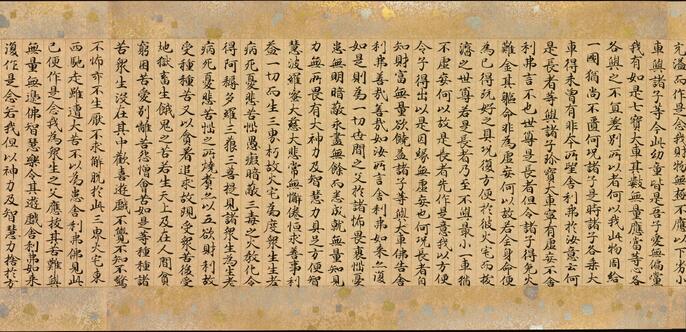 充溢而作是念我財物無極不應以下劣小
車與諸子等今此幼童皆是吾子愛無偏黨
我有如是七寶大車其數無量應當等心各
各與之不宜差別所以者何以我此物周給
一國猶尚不匱何況諸子是時諸子各乘大
車得未曾有非本所望舍利弗於汝意云何
是長者等與諸子珍寶大車寧有虛妄不舍
利弗言不也世尊是長者但令諸子得免火
難全其軀命非為虛妄何以故若全身命便
為已得玩好之具況復方便於彼火宅而拔
濟之世尊若是長者乃至不與最小一車猶
不虛妄何以故是長者先作是意我以方便
令子得出以是因緣無虛妄也何況長者自
知財富無量欲饒益諸子等與大車佛告舍
利弗善哉善哉如汝所言舍利弗如來亦復
如是則為一切世間之父於諸怖畏衰惱憂
患無明暗蔽永盡無餘而悉成就無量知見
力無所畏有大神力及智慧力具足方便智
慧波羅蜜大慈大悲常無懈惓恒求善事利
益一切而生三界朽故火宅為度衆生生老
病死憂悲苦惱愚癡暗蔽三毒之火教化令
得阿耨多羅三藐三菩提見諸衆生為生老
病死憂悲苦惱之所燒煮亦以五欲財利故
受種種苦又以貪著追求故現受衆苦後受
地獄畜生餓鬼之苦若生天上及在人間貧
窮困苦愛別離苦怨憎會苦如是等種種諸
苦衆生沒在其中歡喜遊戲不覺不知不驚
不怖亦不生厭不求解脫於此三界火宅東
西馳走雖遭大苦不以為患舍利弗佛見此
已便作是念我為衆生之父應拔其苦難與
無量無邊佛智慧樂令其遊戲舍利弗如來
復作是念若我但以神力及智慧力捨於方